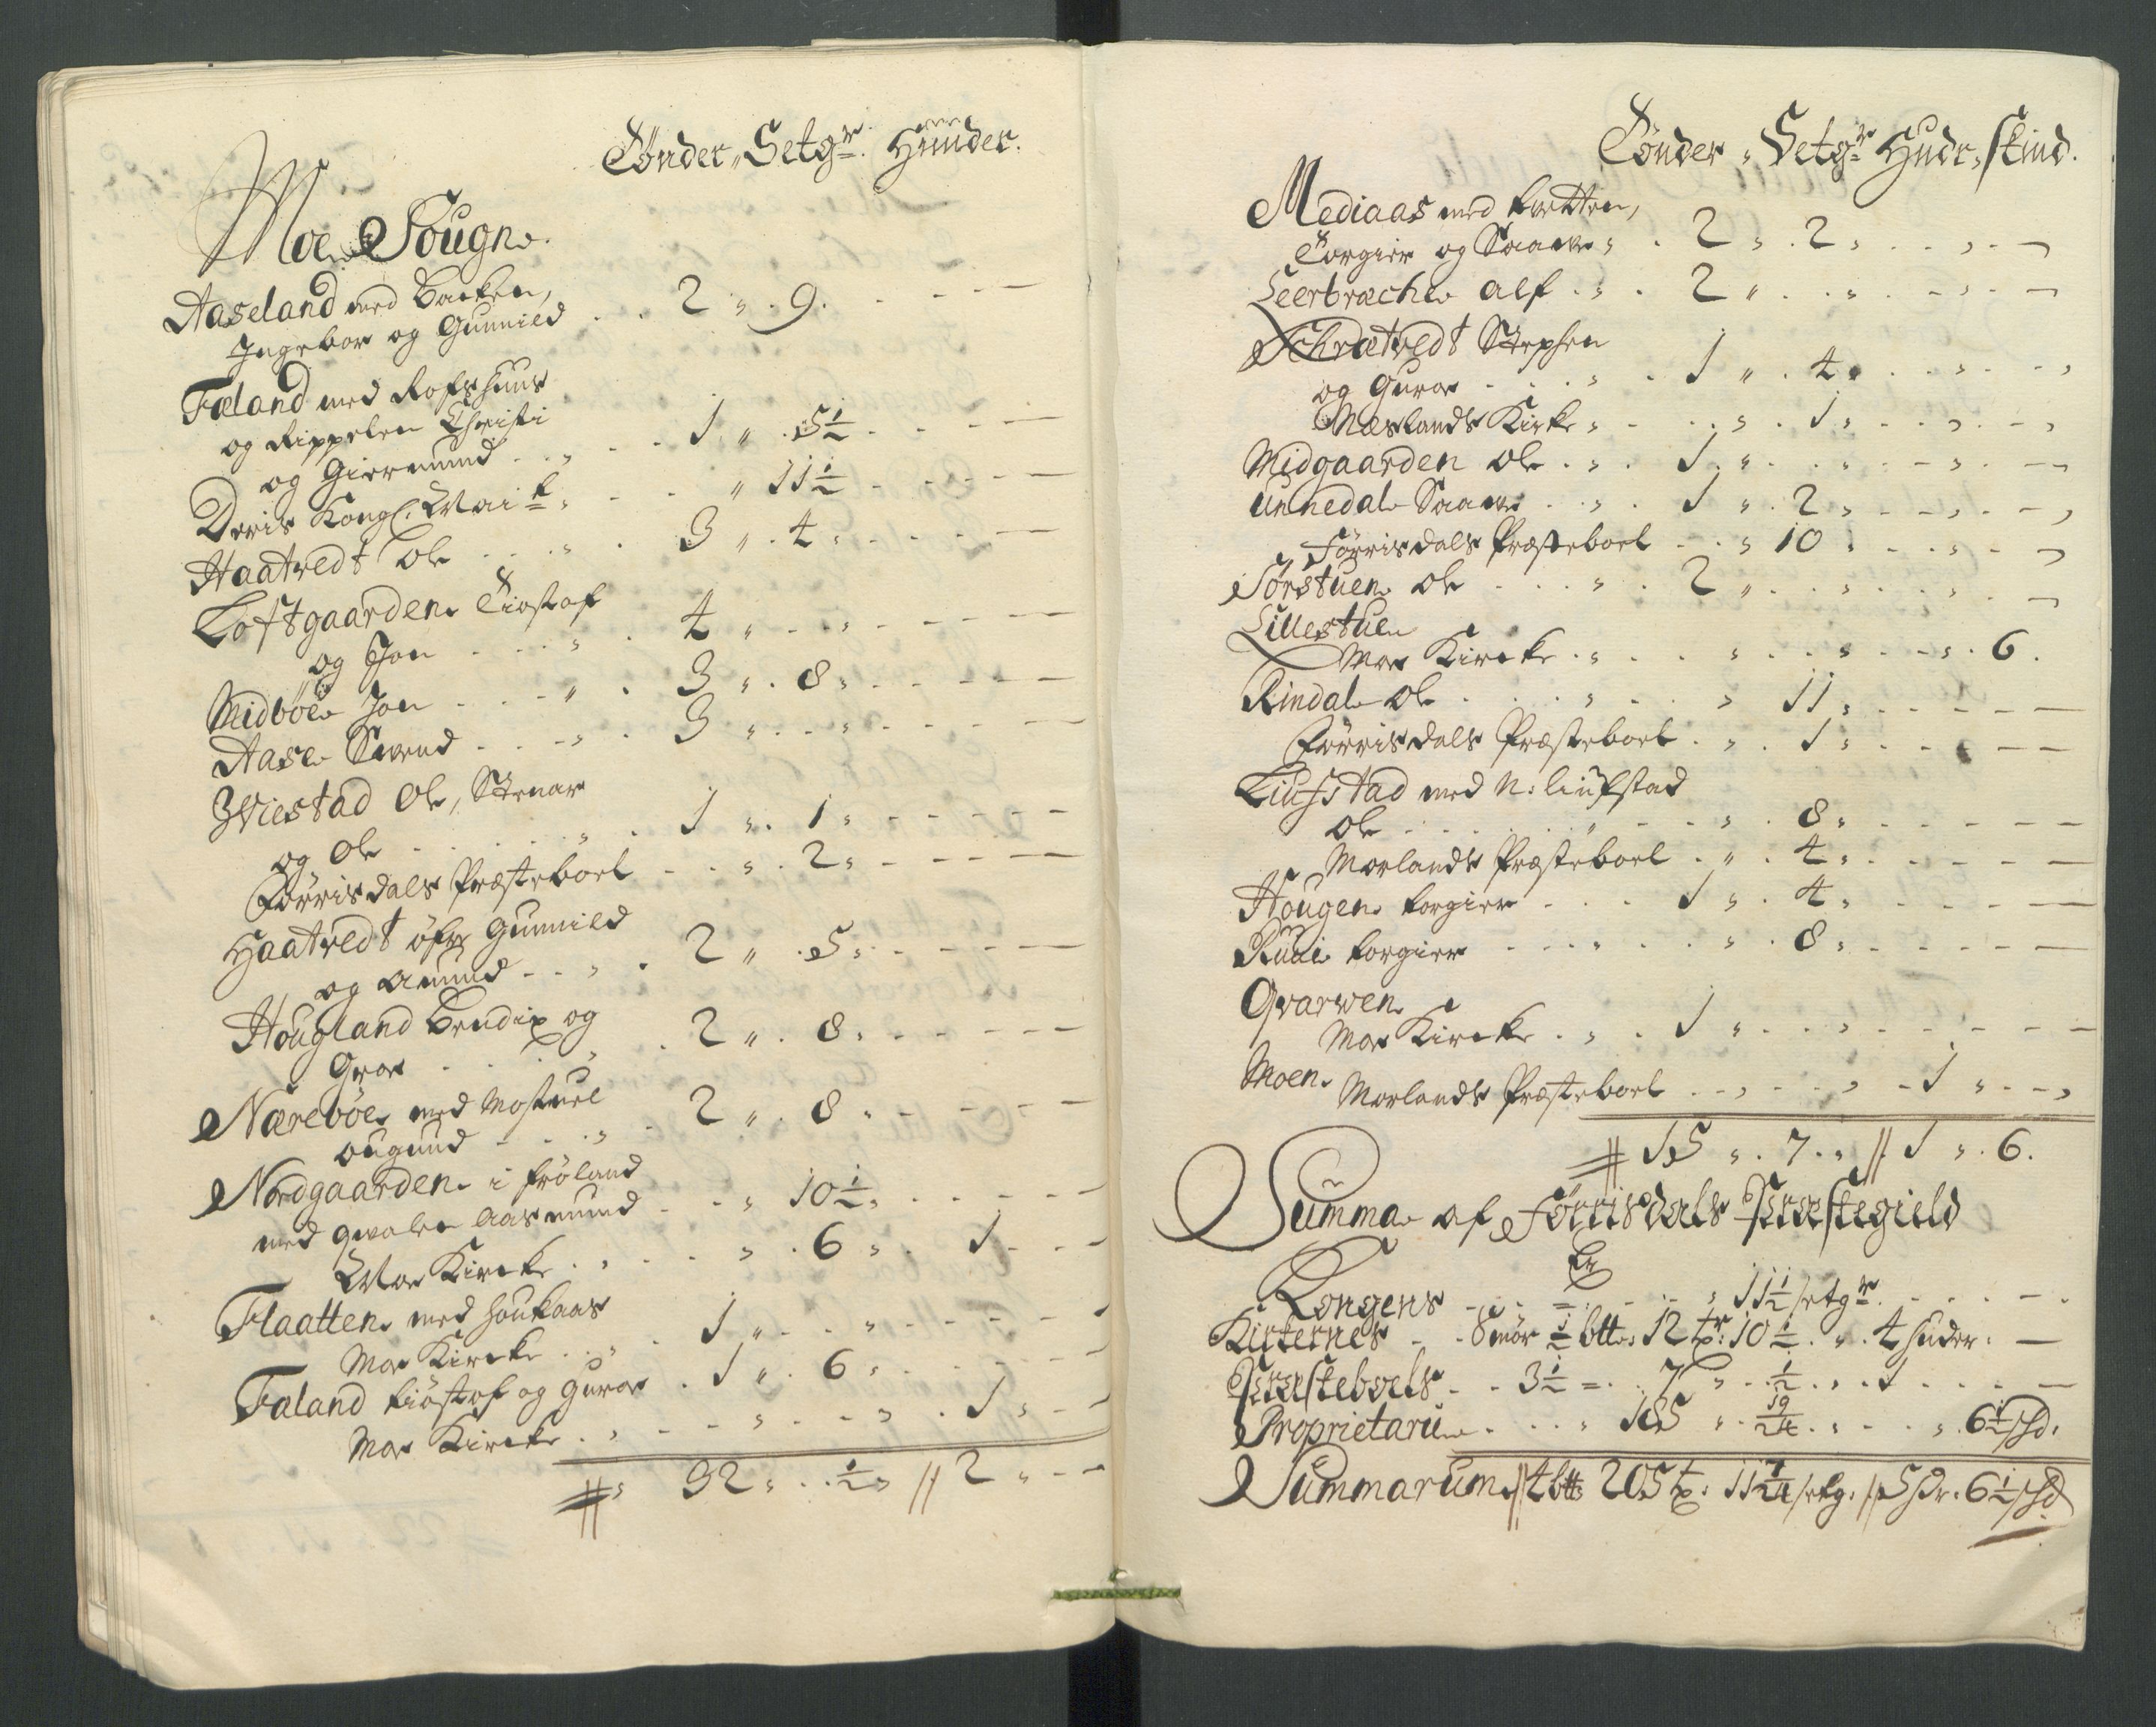 Tönder „ Setgr. Huuder.
Moe Sougn.
Aaseland med Backen,
Ingebor og Gunnild . . 2 „ 9. - - -
Fæland med Rofshuus
og Rippelen Christi
og Giermund . . „ . . 1 „ . 5½ . - - -
Dveris Kongl: Mait „ - - „ 11½ - - -
Haatvedt Ole . . . „ . 3 „ . 4 „ - - -
Loftgaarden Tiostof
og Jon . . . „ . 4 „ - - „ - - -
Midböe Jon . . - „ . 3 „ . 8 „ - - -
Aase Svend . . - „ . 3 „ . . „ - - -
Wiestad Ole, Stenar
og Ole . . . . „ . 1 „ . 1 „ - - -
Förrisdals Præsteboel - . „ . 2 „ - - -
Haatvedt öfre Gunnild
og Amund - - „ . 2 „ . 5 „ - - -
Hougland Bendix og
Groe . . . „ . 2 „ . 8 „ - - -
Næreböe med Mostuel
Ougund - . . „ . 2 „ . 8 „ - - -
Nordgaarden i Fröland
med Qvalen Aasmund - . „ 10½ „ - - -
Moe Kircke . „ . . „ . 6 „ . 1 - - -
Flaatten med Houkaas
Moe Kircke . . „ . 1 „ . . „ - - -
Faland Kiöstof og Guroe . 1 „ . 6 „ - - -
Moe Kircke . „ - - „ . - „ . 1 „ - -
„ 32 „ . . ½ „ // 2 „ - -
Tönder „ Setgr Hudr „ Skind.
Mediaas med Bratten,
Torgier og Saave „ . 2 „ . 2 „ . . „ . -
Leerbræche Alf . „ . 2 „ . . „ . - „ . -
Schrætvedt Stephen
og Guroe . . . „ . 1 „ . 4 „ . . „ . - „
Næslands Kirke „ - . . „ . 1 „ - . „ . - „
Midgaarden Ole . „ . 1 „ . . „ . - „ . -
Unnedal Saave . . „ . 1 „ . 2 „ - - „ . - „
Förrisdals Præsteboel - . „ 10 „ . . „ . -
Sörstuen Ole . . . „ . 2 „ . . „ . . „ . -
Lillestuen
Moe Kircke . „ . . „ . . „ . - „ . 6 .
Rindal Ole . . . „ . . „ 11 „ - - -
Förrisdals Præsteboel . „ . 1 „ - - -
Liufstad med N: Liufstad
Ole . . . . „ - - „ . 8 „ - - -
Morlands Præsteboel . „ . 4 „ - - -
Hougen Torgier . . . 1 „ . 4 „ - - -
Ruui Torgier . . . „ . . „ . 8 „ - - -
Qvarven
Moe Kircke . „ . 1 „ . . „ - - -
Moen
Morlands Præsteboel - - „ - . „ - 1 „ - - „
15 „ . 7 „ // 1 „ . 6.
Summa af Förrisdals Præstegield
Er
Kongens - . . = . . . „ 11½ setgr. - . - .
Kirkernes - - Smör ½ btt: 12 tr: 10½ . „ . 4 huder: -
Præsteboels - . 3½ = . 7 „ . . ½ . „ . 1 . . . -
Proprietarii . . . „ 185 „ . 19/24 . „ . - „ . 6½ sd.
Summarum // 4 btt 205 t: 11 7/24 setg. // 5 hr. 6½ sd